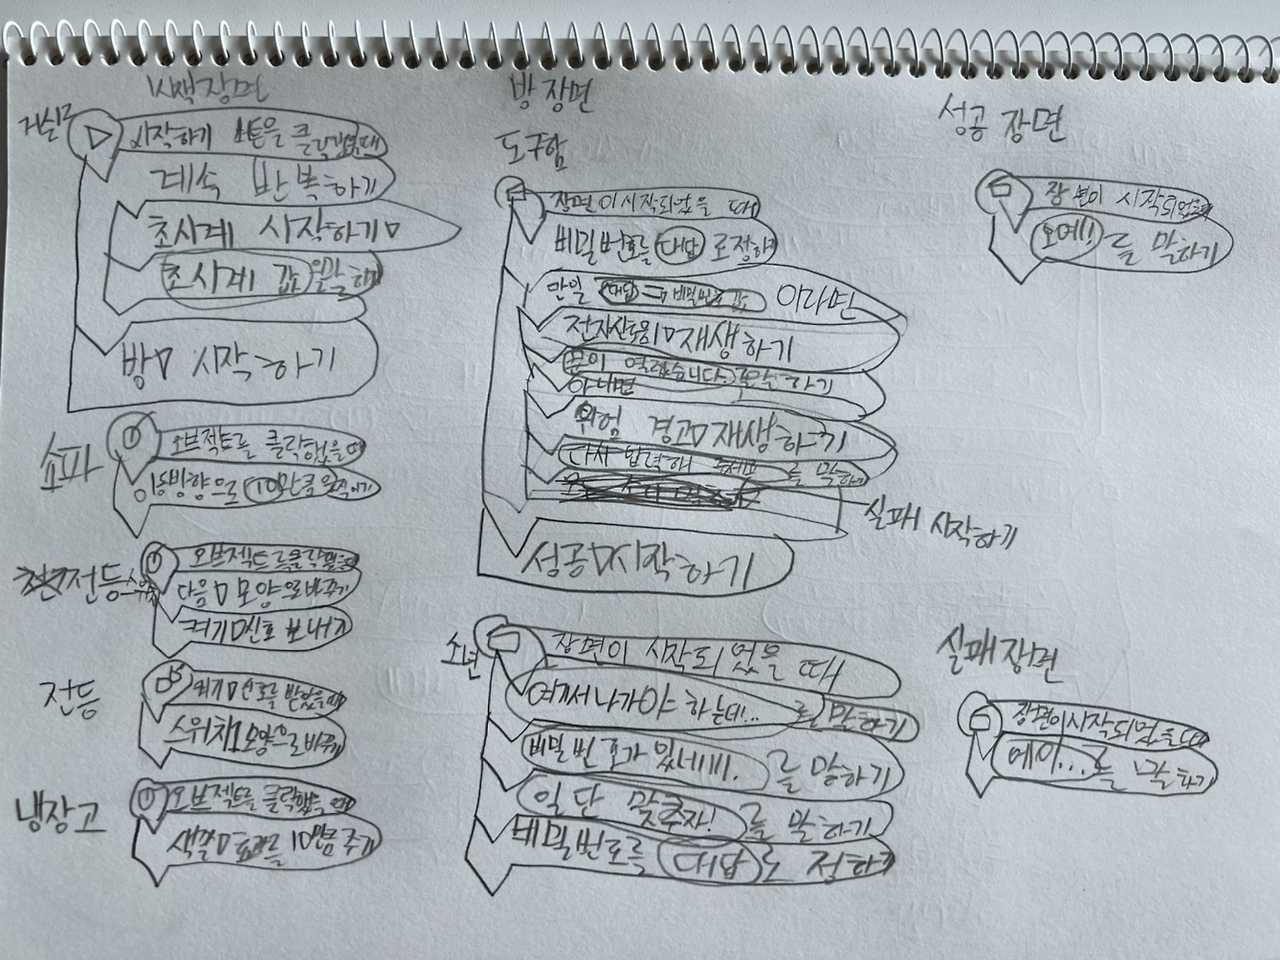 시작 장면
거실
시작하기 버튼을 클릭했을 때
계속 반복하기
초시계 시작하기▽
초시계 값 을 말하기
방▽ 시작하기
쇼파
오브젝트를 클릭했을 때
이동방향으로 10만큼 움직이기
전등스위치
오브젝트를 클릭했을 때
다음▽ 모양으로 바꾸기
켜기▽신호 보내기
전등
켜기▽신호를 받았을 때
스위치1모양으로 바꾸기
냉장고
오브젝트를 클릭했을 때
색깔▽효과를 10만큼 주기
방 장면
도구함
장면이 시작되었을 때
비밀번호를 대답 로 정하
만일 대답 = 비밀번호 값 이라면
전자신호음▽재생하기
문이 열렸습니다. 를 말하기
아니면
위험 경고▽재생하기
다시 입력해 주세요 를 말하기
실패 시작하기
성공▽시작하기
소년
장면이 시작되었을 때
여기서 나가야 하는데... 를 말하기
비밀번호가 있네. 를 말하기
일단 맞추자! 를 말하기
비밀번호를 대답 로 정하
성공 장면
장면이 시작되었을때
오예! 를 말하기
실패 장면
장면이 시작되었을 때
에이... 를 말하기